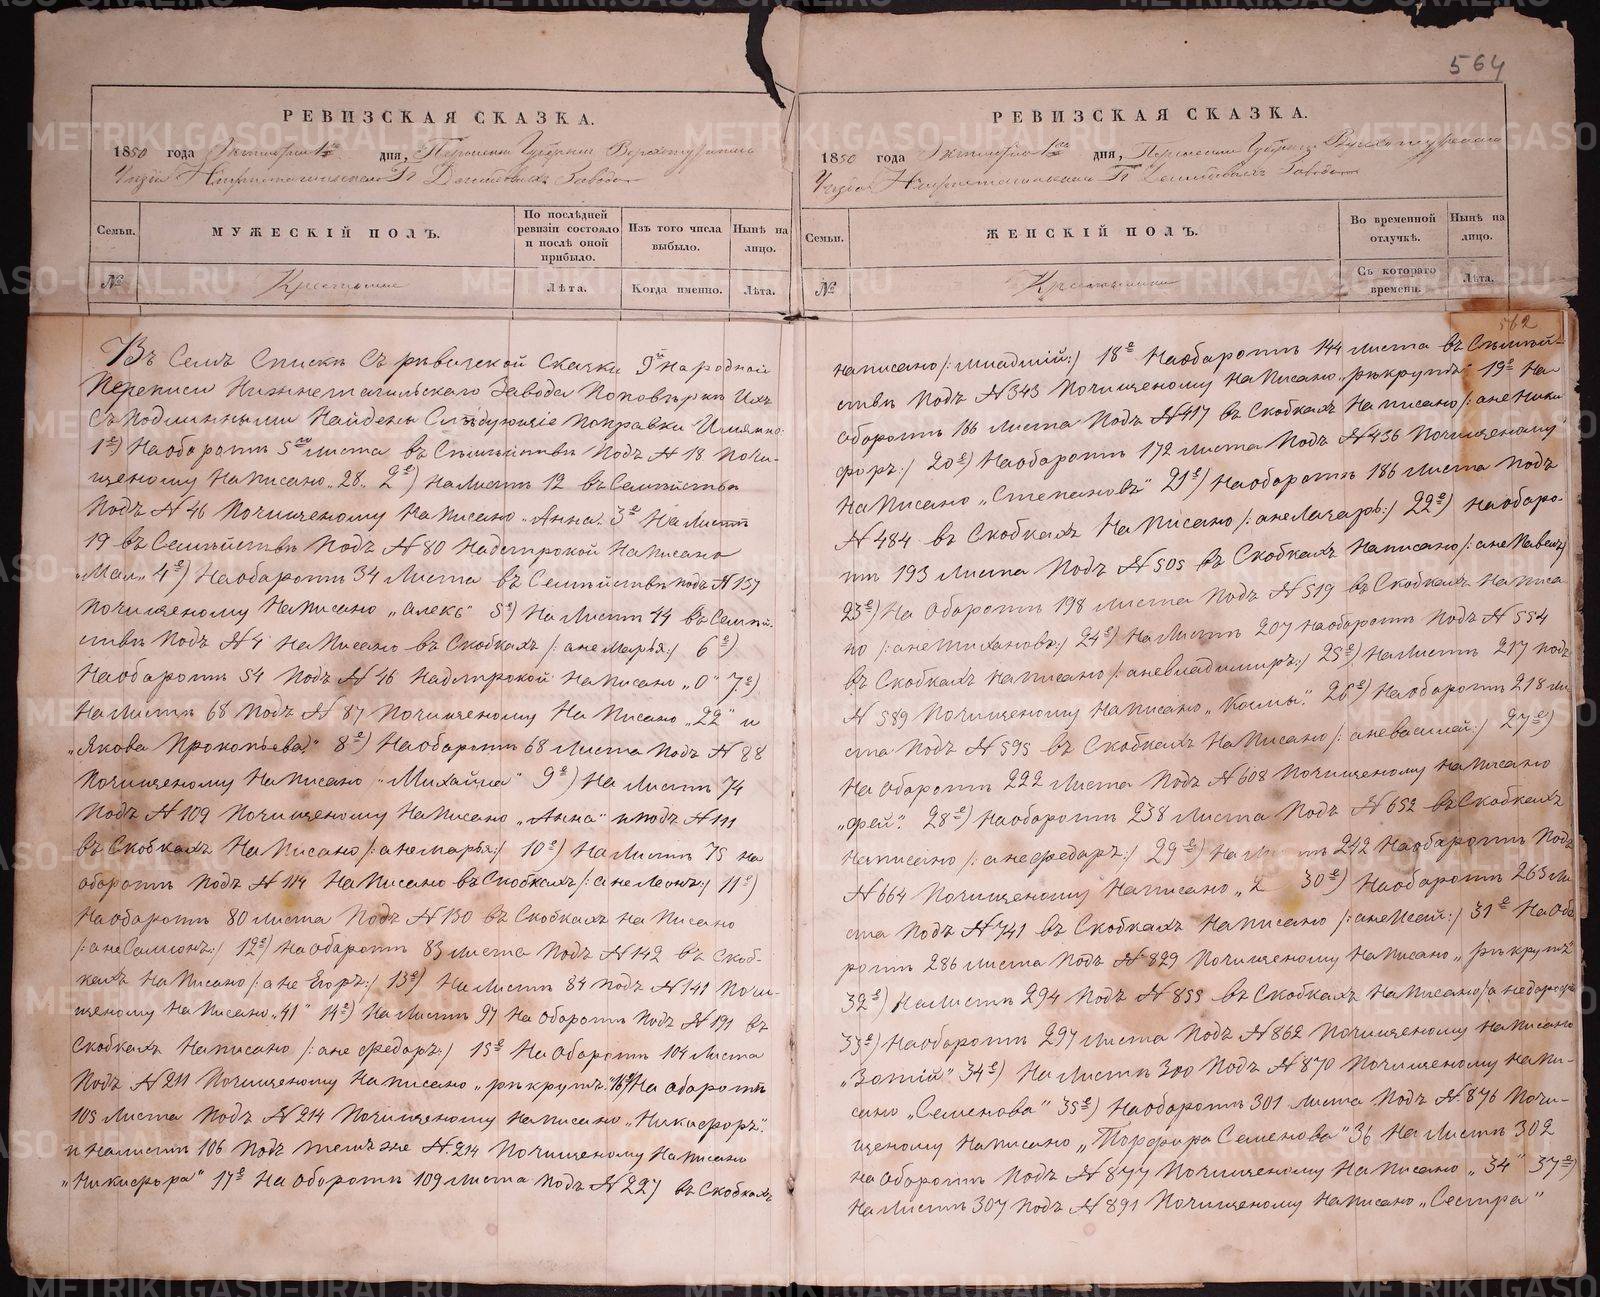 564
РЕВИЗСКАЯ СКАЗКА.
1850 года Октября 1го дня, Пермской Губернии Верхотурскаго
Уезда Нижнетагильскаго Г.г. Демидовыхъ Завода
Семьи.
МУЖЕСКІЙ ПОЛЪ.
По послѣдней ревизіи состояло и послѣ оной прибыло.
Изъ того числа выбыло.
Нынѣ на лицо.
№
Крестьяне
Лѣта.
Когда именно.
Лѣта.
Въ Семъ Списки Съ ривизской Сказки 9й народной
Переписи Нижнетагильскаго Завода Поповѣрки Ихъ
Съ Подлинными Найдены Слѣдующіе поправки Имянно:
1е) Наоборотѣ 5го листа въ Сѣмѣйствѣ Подъ № 18 Почи-
щеному Написано „28„ 2е) на Листѣ 12 въ Семѣйствѣ
Подъ № 46 Почищеному Написано „Анна„ 3е На Листѣ
19 въ Семѣйствѣ Подъ № 80 Надстрокой Написано
„Мал„ 4е) Наоборотѣ 34 Листа въ Семѣйствѣ подъ № 157
Почищеному Написано „Алекс" 5е) На Листѣ 44 въ Семѣй-
ствѣ Подъ № 4 Написано въ Скобкахъ /: ане Марья:/ 6е)
Наоборотѣ 54 Подъ № 46 Надстрокой Написано „О" 7е)
На Листѣ 68 Подъ № 87 Почищеному На Писано „22" и
„Якова Прокопьева" 8е) Наоборотѣ 68 Листа подъ № 88
Почищеному Написано „Михайла" 9е) На Листѣ 74
Подъ № 109 Почищеному Написано „Анна" и подъ № 111
въ Скобкахъ Написано /: ане марья:/ 10е) На Листѣ 75 на
оборотѣ Подъ № 114 Написано въ Скобкахъ /: ане Леонъ:/ 11е)
Наоборотѣ 80 листа Подъ № 130 въ Скобкахъ на Писано
/: ане Самсонъ:/ 12е) Наоборотѣ 83 листа Подъ № 142 въ Скоб-
кахъ Написано /: ане Егоръ:/ 13е) На Листѣ 84 подъ № 141 Почи-
щеному Написано „41" 14е) На Листѣ 97 На оборотѣ Подъ № 191 въ
Скобкахъ Написано /: ане федоръ:/ 15е На оборотѣ 104 Листа
Подъ № 211 Почищеному Написано „рѣкрутъ" 16е) На оборотѣ
105 Листа Подъ № 214 Почищеному Написано „Никифоръ"
и на листѣ 106 Подъ темъ же № 214 Почищеному Написано
„Никифора" 17е На оборотѣ 109 листа подъ № 227 въ Скобкахъ
РЕВИЗСКАЯ СКАЗКА.
1850 года Октября 1го дня, Пермской Губерніи Верхотурскаго
Уезда Нижнетагильскаго Г.г. Демидовыхъ Завода
Семьи.
ЖЕНСКІЙ ПОЛЪ.
Во временной отлучкѣ.
Нынѣ на лицо.
№
Крестьянки
Съ котораго времени.
Лѣта.
562
написано /: младшій:/ 18е Наоборотѣ 144 листа въ Сѣмѣй-
ствѣ Подъ № 343 Почищеному Написано „рѣкрутъ" 19е На
оборотѣ 166 листа Подъ № 417 въ Скобкахъ Написано /: ане Ники
форъ:/ 20е) Наоборотѣ 172 листа Подъ № 436 Почищеному
Написано „Степановъ" 21е) Наоборотѣ 186 листа Подъ
№ 484 въ Скобкахъ Написано /: ане Лазарь:/ 22е) Наоборо-
тѣ 193 Листа Подъ № 505 въ Скобкахъ Написано /: ане Павелъ:/
23е) На оборотѣ 198 листа Подъ № 519 въ Скобкахъ Написа
но /: ане Тихановъ:/ 24е) На Листѣ 207 Наоборотѣ Подъ № 554
въ Скобкахъ Написано /: аневладимиръ:/ 25е) На Листѣ 217 подъ
№ 589 Почищеному Написано „Космы" 26е) На оборотѣ 218 ли
ста Подъ № 595 въ Скобкахъ Написано /: аневасилей:/ 27е)
На оборотѣ 222 Листа Подъ № 608 Почищеному Написано
„фей" 28е) Наоборотѣ 238 листа Подъ № 652 въ Скобкахъ
Написано /: анефедоръ:/ 29е) На Листѣ 242 Наоборотѣ Подъ
№ 664 Почищеному Написано „2 30е) Наоборотѣ 263 Ли
ста Подъ № 741 въ Скобкахъ Написано /: анеИсай:/ 31е На обо
ротѣ 286 листа Подъ № 829 Почищеному Написано „рѣкрутъ"
32е) На Листѣ 294 Подъ № 855 въ Скобкахъ Написано /:
33е) Наоборотѣ 297 Листа Подъ № 862 Почищеному Написано
„Зотій" 34е) На Листѣ 300 Подъ № 870 Почищеному Напи-
сано „Семенова" 35е) Наоборотѣ 301 Листа Подъ № 876 Почи-
щеному Написано „Порфира Семенова" 36 На Листѣ 302
на оборотѣ Подъ № 877 Почищеному Написано „34" 37е)
На Листѣ 307 подъ № 891 Почищеному Написано „Сестра"